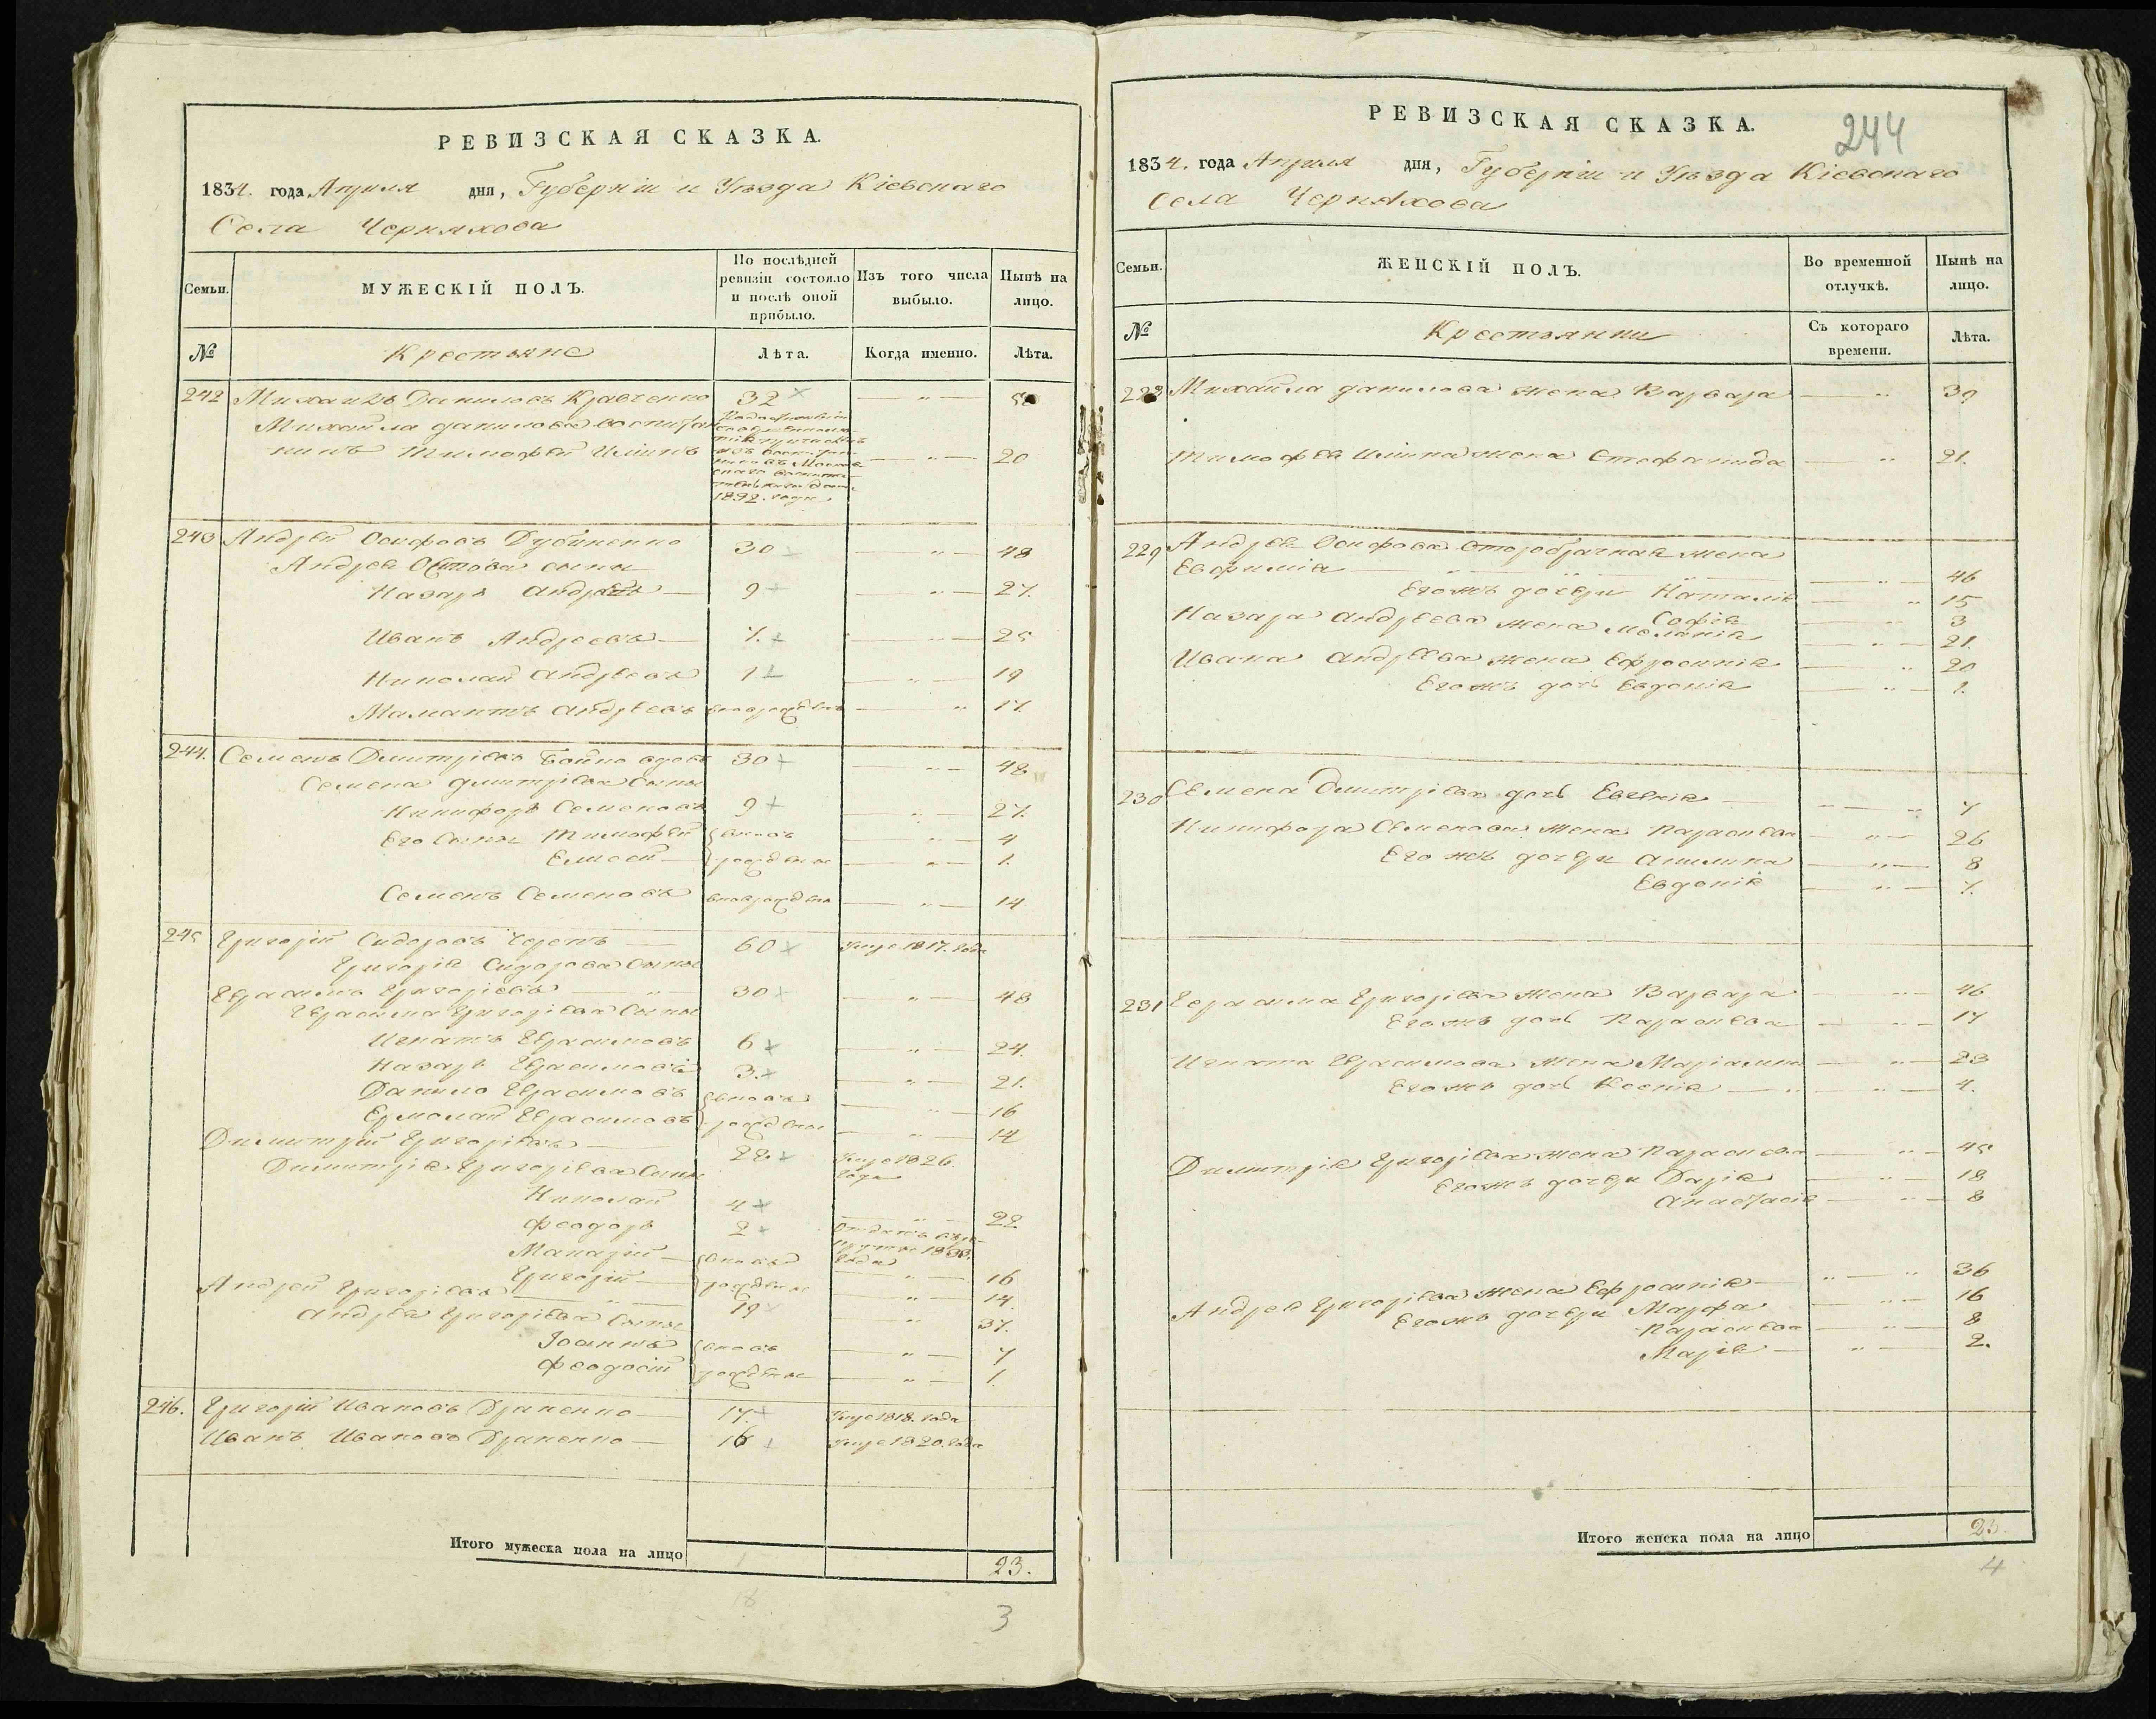 РЕВИЗСКАЯ СКАЗКА.
1834. года Апреля дня, Губерніи и Уѣзда Кіевскаго
Села Черняхова
Семьи.
МУЖЕСКІЙ ПОЛЪ.
По послѣдней ревизіи состояло и послѣ оной прибыло.
Изъ того числа выбыло.
Нынѣ на лицо.
№
Крестьяне
Лѣта.
Когда именно.
Лѣта.
242 Михаилъ Даниловъ Кравченко 32 — " —
Михайла Данилова воспитан
никъ Тимофей Ильинъ — " — 20
243 Андрей Осиповъ Дубиненко 30 — " — 48
Андрея Осипова сыны
Назаръ Андреевъ 9 — " — 27.
Иванъ Андреевъ 7. — " — 25
Николай Андреевъ 1 — " — 19
Мамантъ Андреевъ вновьрожденъ — " — 17.
244. Семенъ Дмитріевъ Бойко вдовъ 30 — " — 48
Семена Дмитріева сыны
Никифоръ Семеновъ 9 — " — 27.
Его сыны Тимофей вновь — " — 4
Елисей рожденые — " — 1.
Семенъ Семеновъ вноврожденъ — " — 14
245 Григорій Сидоровъ Черепъ 60 Умре 1817. года
Григорія Сидорова сыны
Герасимъ Григоріевъ 30 — " — 48
Герасима Григоріева сыны
Игнатъ Герасимовъ 6 — " — 24.
Назаръ Герасимовъ 3. — " — 21.
Данило Герасимовъ вновь — " — 16
Ермолай Герасимовъ рожденые — " — 14
Димитрій Григоріевъ 28 Умре 1826. года
Димитрія Григоріева сыны
Николай 4 — " — 22
Феодоръ 2 Отданъ въ рекруты 1833. года
Макарій вновь — " — 16
Григорій рожденые — " — 14.
Андрей Григоріевъ 19 — " — 37.
Андрея Григоріева сыны
Іоаннъ вновь — " — 7
Феодосій рожденые — " — 1.
246. Григорій Ивановъ Драненко 17. Умре 1818. года
Иванъ Ивановъ Драненко 16 Умре 1820. года
Итого мужеска пола на лицо 23.
3
РЕВИЗСКАЯ СКАЗКА.
244
1834. года Апреля дня, Губерніи и Уѣзда Кіевскаго
Села Черняхова
Семьи.
ЖЕНСКІЙ ПОЛЪ.
Во временной отлучкѣ.
Нынѣ на лицо.
№
Крестьянки
Съ котораго времени.
Лѣта.
Михайла Данилова жена Варвара — " 39
Тимофея Ильина жена Стефанида — " 21.
229 Андрея Осипова второбрачная жена
Евфимія — " — 46
Егожъ дочери Наталія — " 15
Софія — " — 3
Назара Андреева жена Меланія — " — 21.
Ивана Андреева жена Ефросинія — " 20
Егожъ дочь Евдокія — " — 1.
230 Семена Дмитріева дочь Евгенія — " 7
Никифора Семенова жена Параскева — " — 26
Егожъ дочери Акилина — " — 8
Евдокія — " — 7.
231 Герасима Григоріева жена Варвара — " — 46
Егожъ дочь Параскева — " — 17
Игната Герасимова жена Маріанна — " — 23
Егожъ дочь Ксенія — " — 4.
Димитрія Григоріева жена Параскева — " — 45
Егожъ дочери Дарія — " — 18
Анастасія — " — 8
Андрея Григоріева жена Ефросинія " — " 36
Егожъ дочери Марфа — " — 16
Параскева — " — 8
Марія " — 2.
Итого женска пола на лицо 23.
4